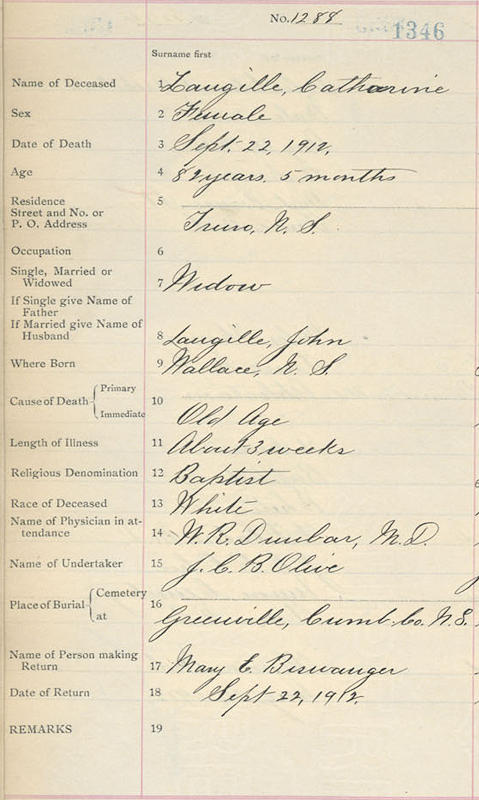 No. 1288
1346
Surname first
Name of Deceased 1 Langille, Catharine
Sex 2 Female
Date of Death 3 Sept. 22, 1912,
Age 4 82 years. 5 months
Residence 5
Street and No. or
P. O. Address Truro, N. S.
Occupation 6
Single, Married or
Widowed 7 Widow
If Single give Name of
Father
If Married give Name of
Husband 8 Langille, John
Where Born 9 Wallace, N. S.
Cause of Death { Primary
Immediate 10 Old Age
Length of Illness 11 About 3 weeks
Religious Denomination 12 Baptist
Race of Deceased 13 White
Name of Physician in at-
tendance 14 W. R. Dunbar, M. D.
Name of Undertaker 15 J. C. B. Olive
Place of Burial { Cemetery
at 16 Greenville, Cumb. Co. N. S.
Name of Person making
Return 17 Mary E. Biswanger
Date of Return 18 Sept 22, 1912.
REMARKS 19